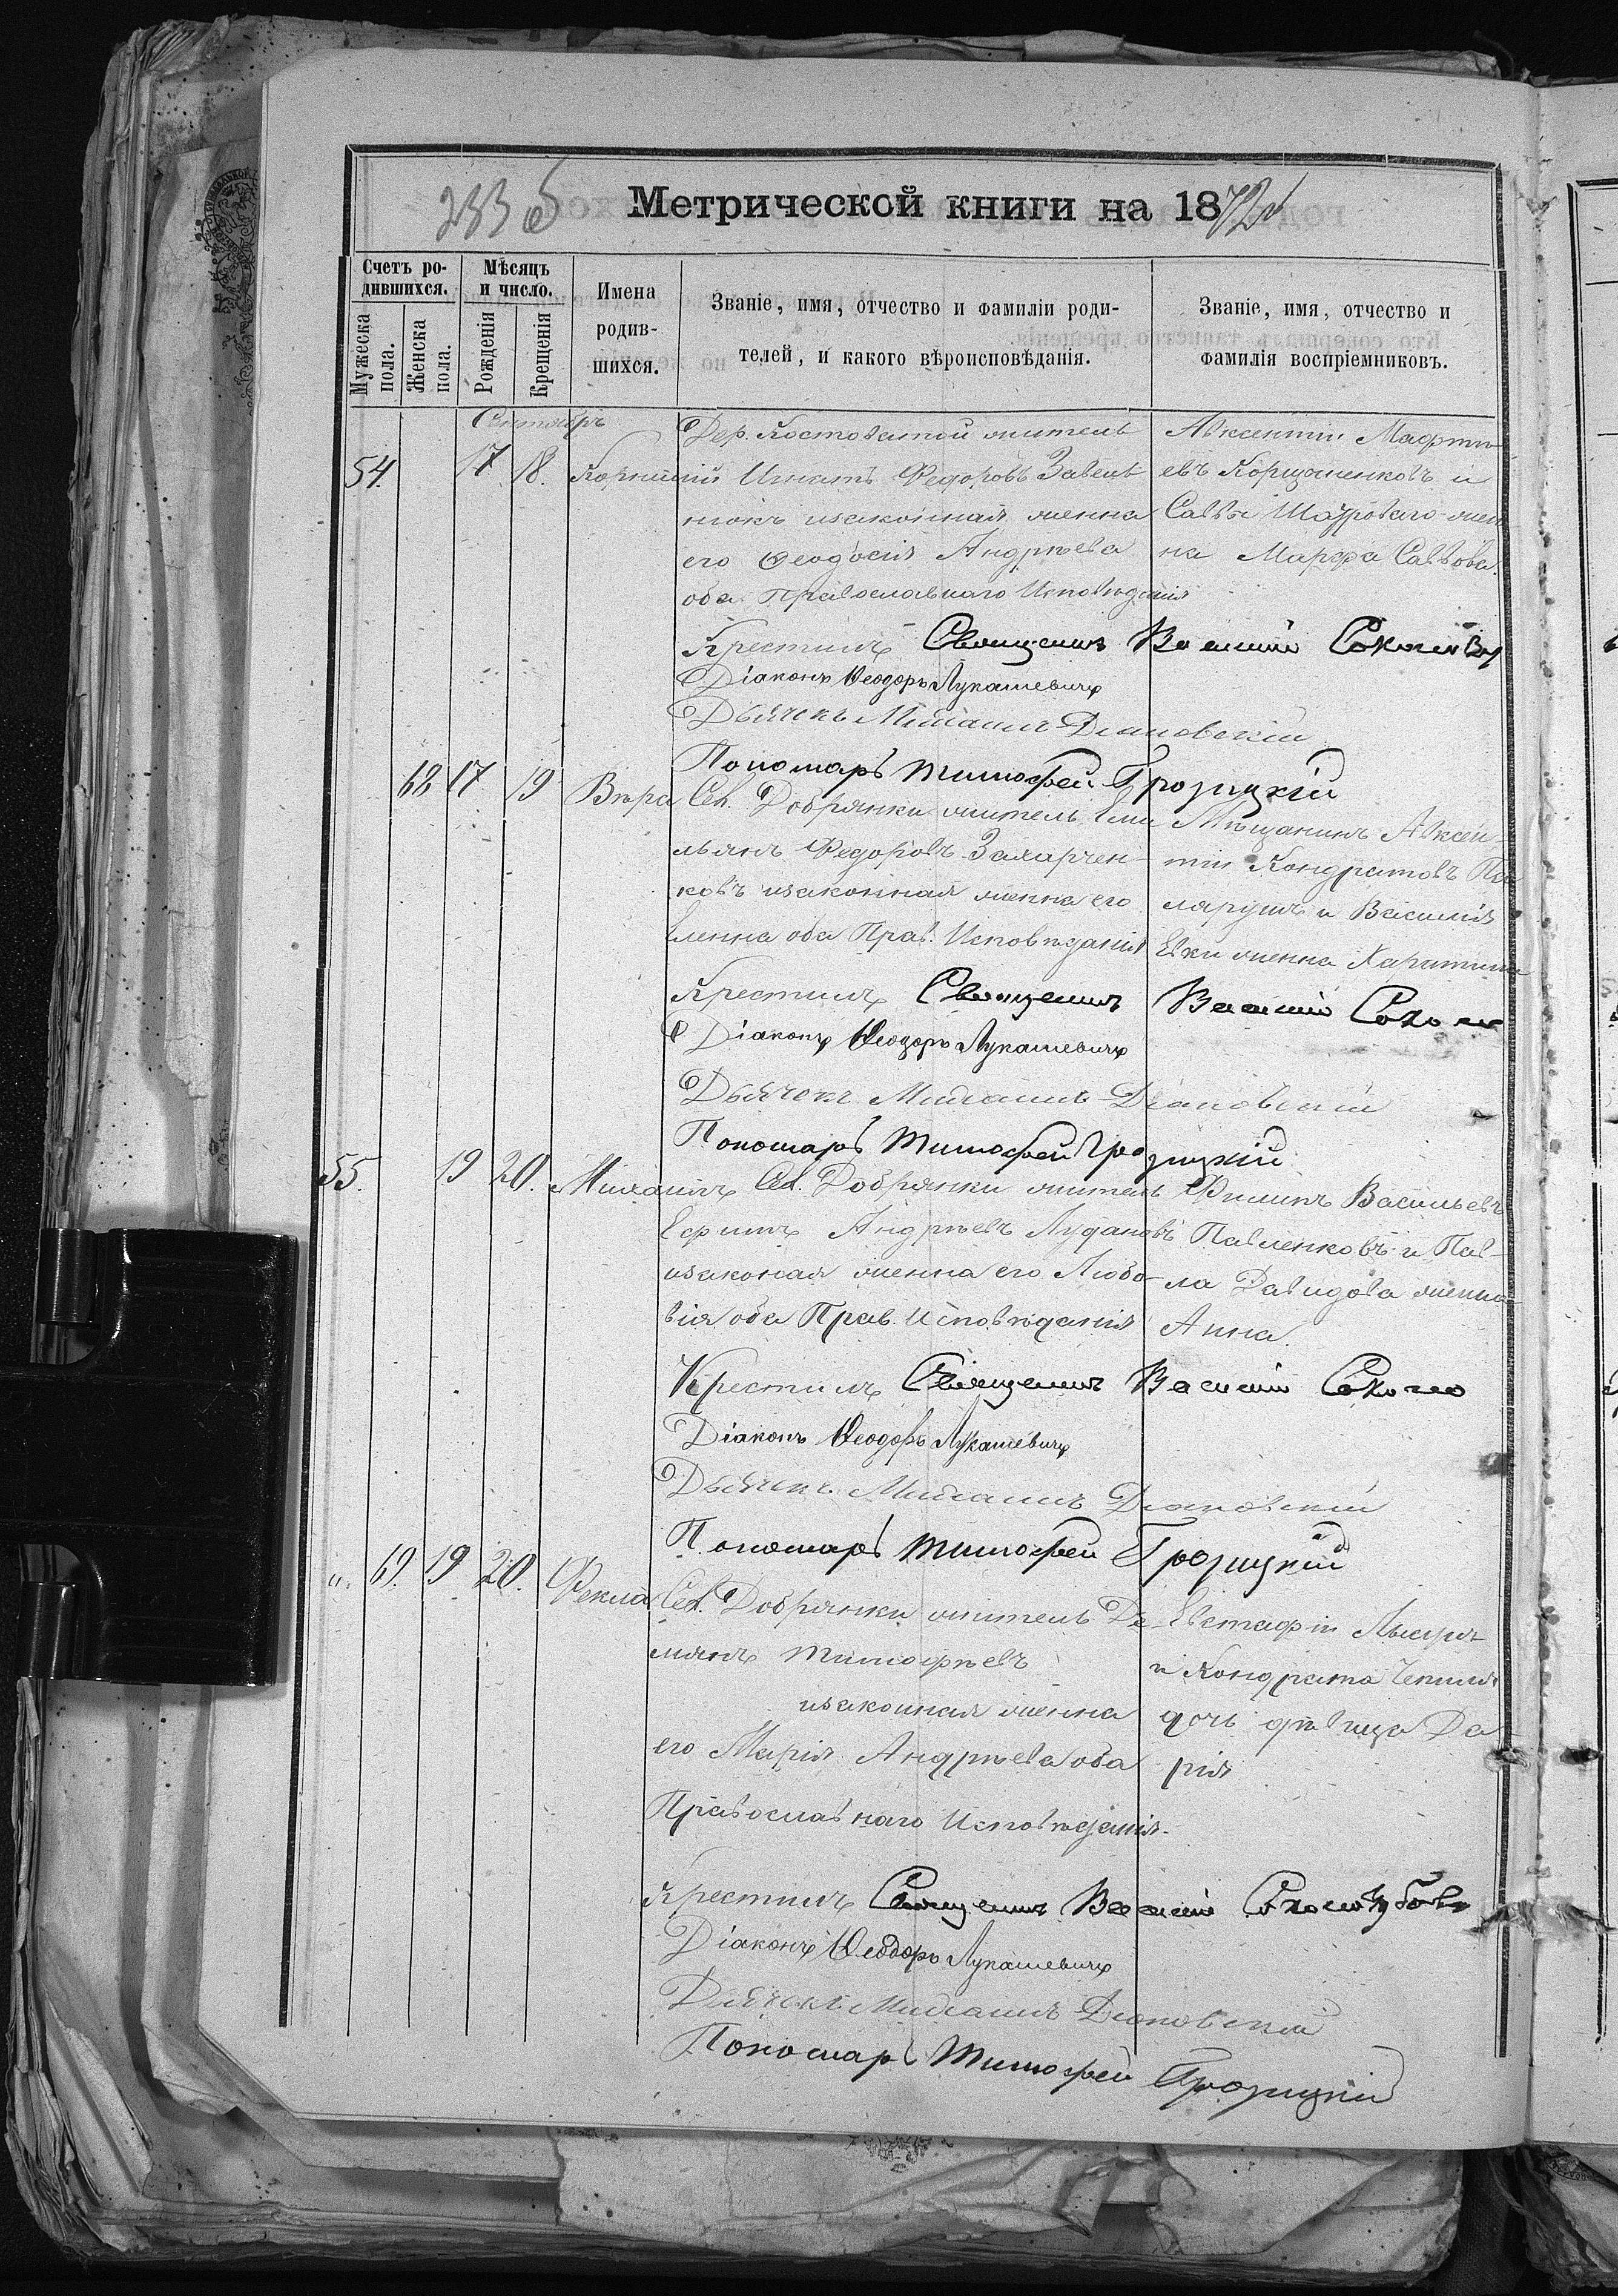 283 об
Метрической книги на 1872
Счетъ ро-
дившихся.
Мѣсяцъ
и число.
Мужеска
пола.
Женска
пола.
Рожденія
Крещенія
Имена
родив-
шихся.
Званіе, имя, отчество и фамиліи роди-
телей, и какого вѣроисповѣданія.
Званіе, имя, отчество и
фамилія воспріемниковъ.
Сентябрь
54. 17 18. Корнилій
Дер. Костоватой житель
Игнатъ Федоровъ
нюкъ изаконная женна
его Ѳеодосія Андрѣева
оба православнаго Исповѣданія
Авксентій
евъ и
Саввы жен
на Марфа Саввова
Крестилъ Священникъ Василий
Діаконъ Ѳеодоръ Лукашевичъ
Дьячокъ Михаилъ Диаковскій
Пономарь Тимофей Гродицкій
68 17 19 Вѣра
Сел. Добрянки житель Еми
льянъ Федоровъ Захарчен-
ковъ изаконная женна его
Еленна оба Прав. Исповѣданія
Мѣщанинъ Авксен-
тій Кондратовъ
и Василія
женна
Крестилъ Священникъ Василий
Діаконъ Ѳеодоръ Лукашевичъ
Дьячокъ Михаилъ Диаковскій
Пономарь Тимофей Гродицкій
55. 19 20. Михаилъ
Сел. Добрянки житель
Ефимъ Андрѣевъ Лудановъ
изаконая женна его Любо-
вія оба Прав. Исповѣданія
Филипъ Васильевъ
Павленковъ и Пав-
ла Давидова женна
Анна
Крестилъ Священникъ Василий
Діаконъ Ѳеодоръ Лукашевичъ
Дьячокъ Михаилъ Диаковскій
Пономарь Тимофей Гродицкій
„ 69. 19 20. Фекла
Сел. Добрянки житель Де-
мянъ Тимофѣевъ
изаконная женна
его Марія Андрѣева оба
Православнаго Исповѣданія.
Евстафій
и Кондрата
дочь дѣвица Да-
рія
Крестилъ Священникъ Василий
Діаконъ Ѳеодоръ Лукашевичъ
Дьячокъ Михаилъ Диаковскій
Пономарь Тимофей Гродицкій